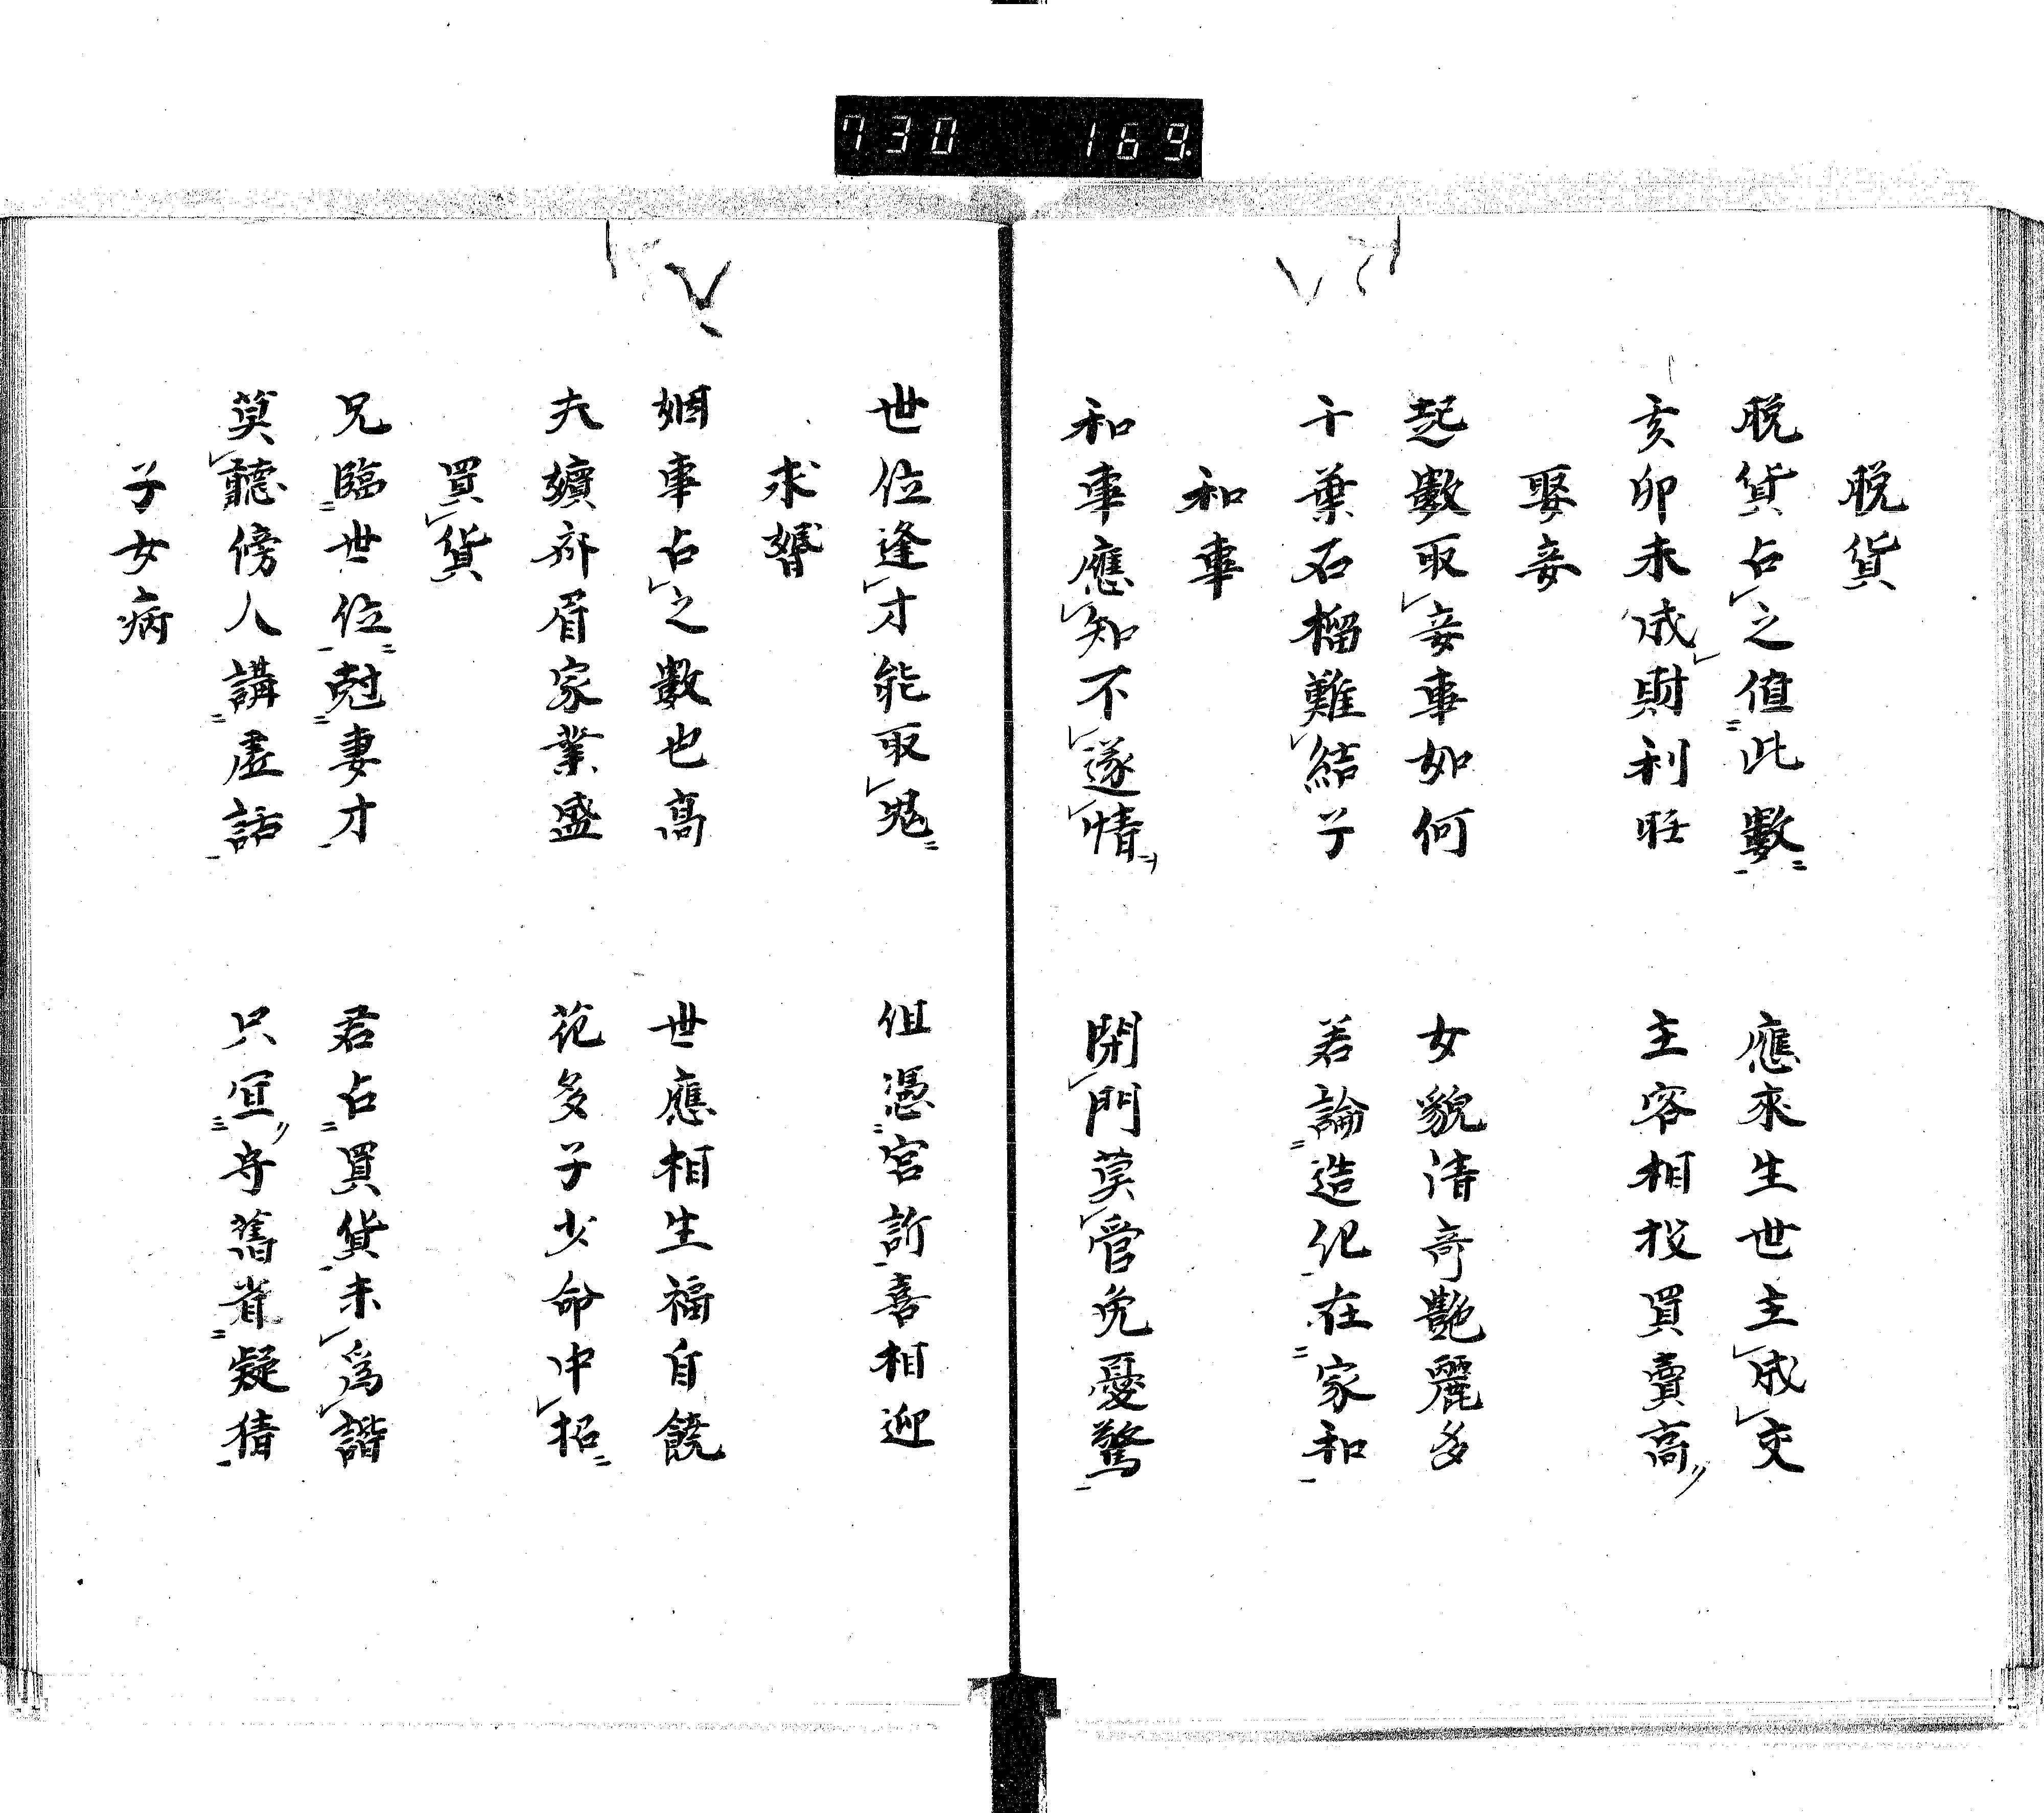 730 169.
脱貨
脱貨占之值此數 應來生世主成交
亥卯未成財利旺 主客相投買賣高
娶妾
起數取妾事如何 女貌清奇艷麗多
千葉石榴難結子 若論造化在家和
和事
和事應知不遂情 閉門莫管免憂驚
世位逢才能取鬼 但憑官訢喜相迎
求婚
姻事占之數也高 世應相生福自饒
夫嬪齐眉家業盛 花多子少命中招
買貨
兄臨世位尅妻才 君占買貨未爲諧
莫聽傍人講虛話 只宜守舊省疑猜
子女病